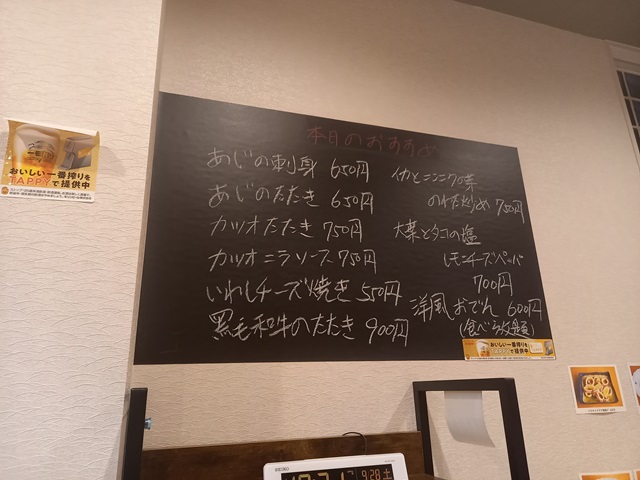 本日のおすすめ
あじの刺身 650円
あじのたたき 650円
カツオたたき 750円
カツオニラソース 750円
いわしチーズ焼き 550円
黒毛和牛のたたき 900円
イカとニンニクの芽
のわた炒め 750円
大葉とタコの塩
レモンチーズペッパー
700円
洋風おでん 600円
(食べラー放題)
おいしい一番搾りを
TAPPYで提供中
おいしい一番搾りを
で提供中
SEIKO
9.28 土